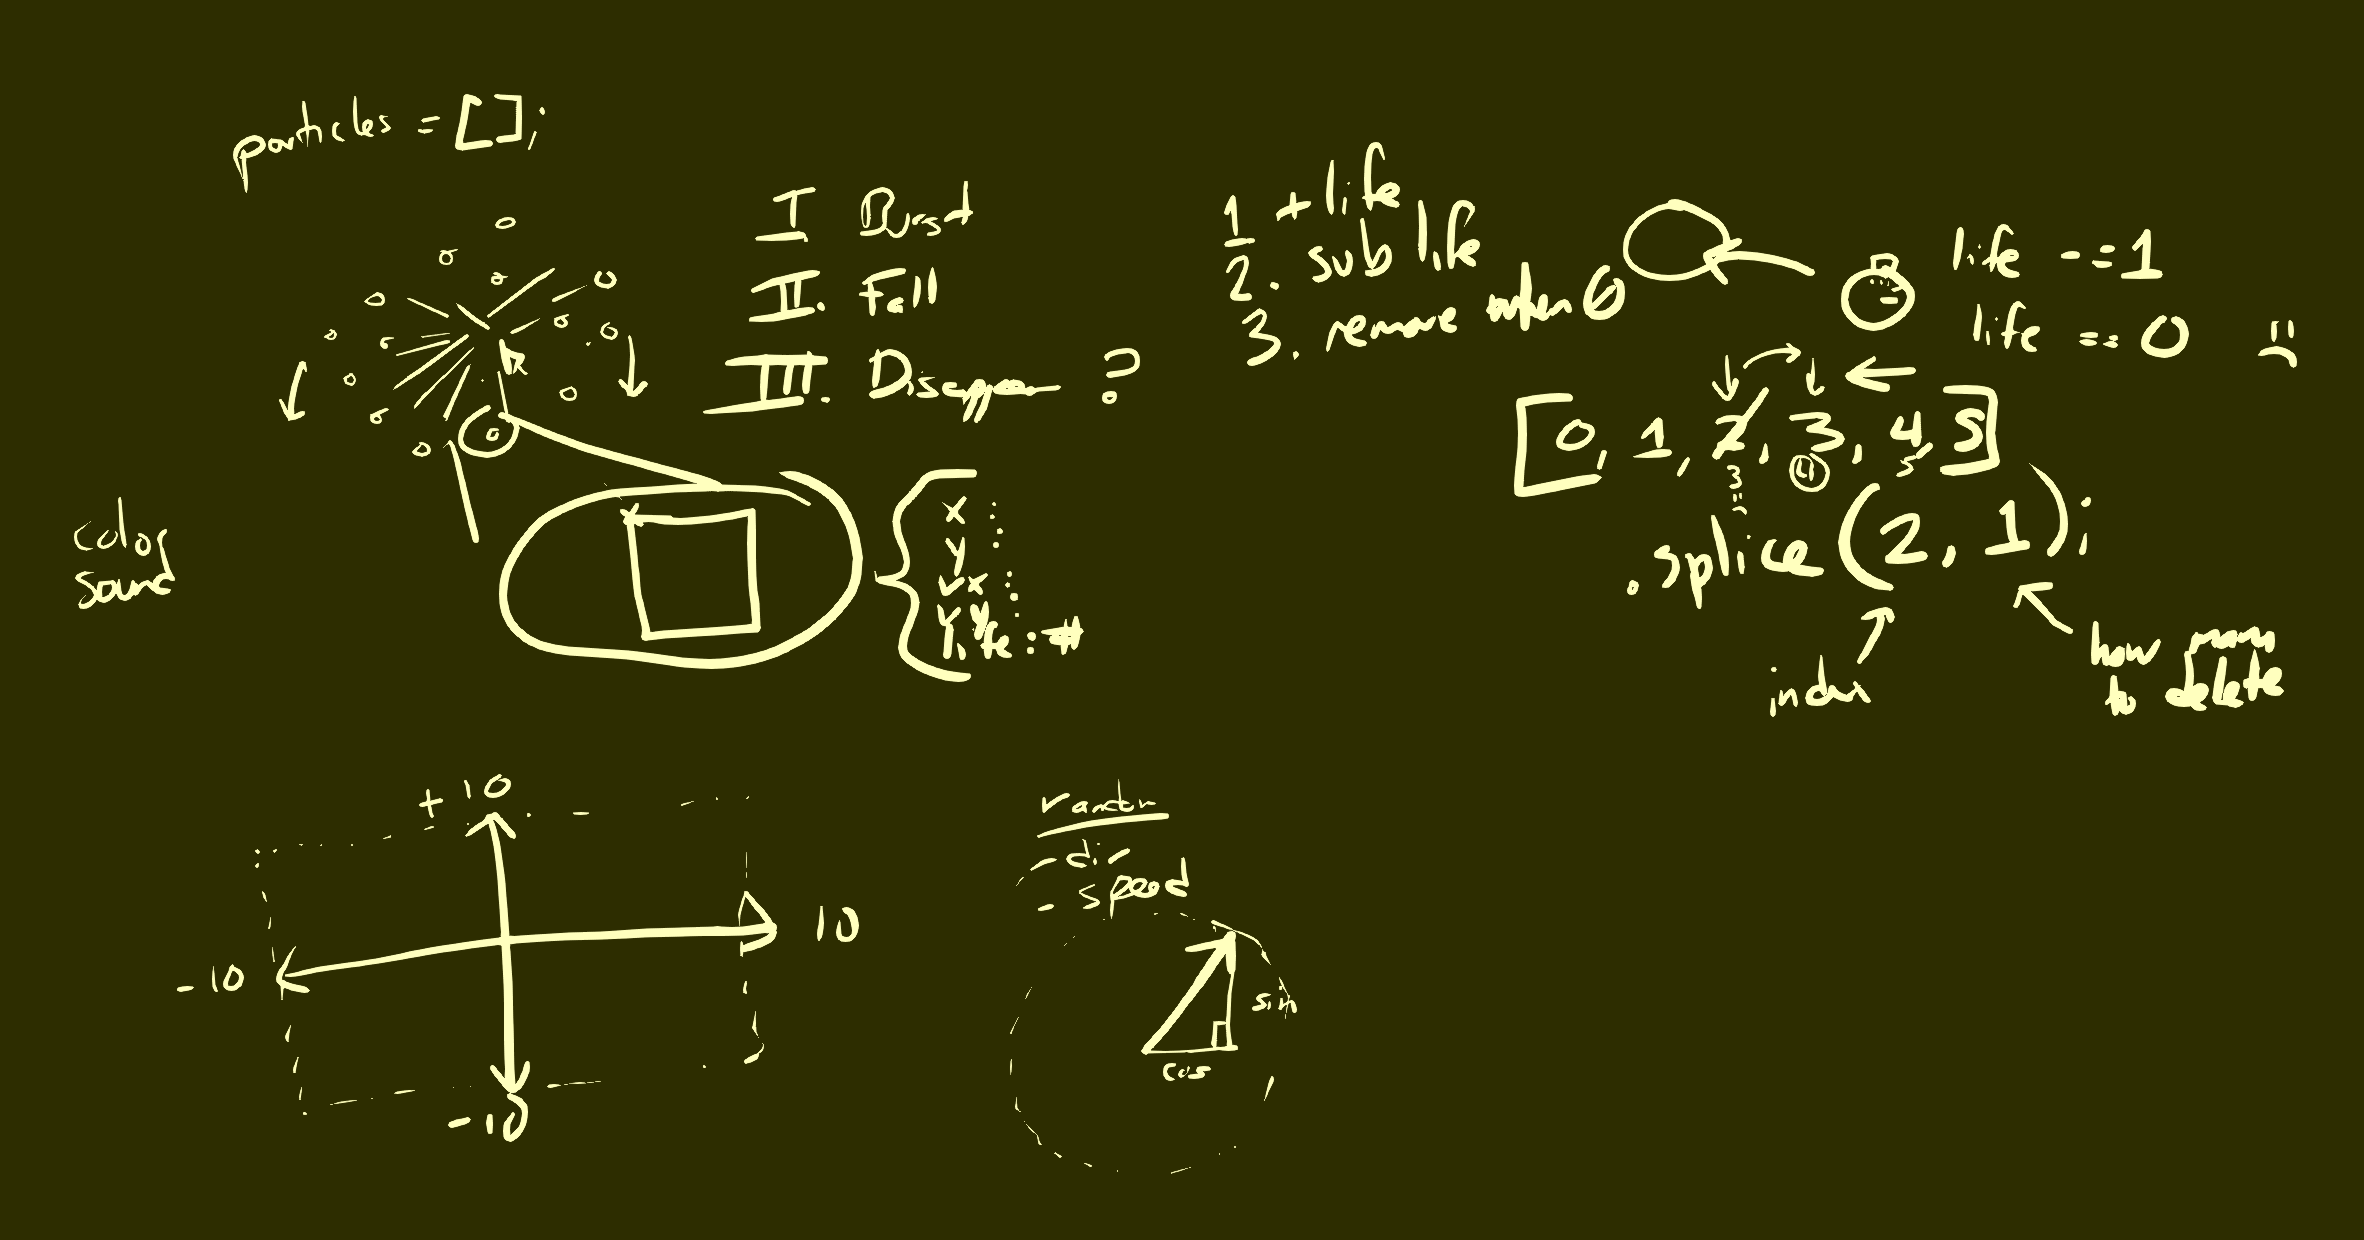 particles = [];
I Burst
II. Fall
III. Disappear ?
color
sound
x :
y :
vx :
vy :
life : #
1 + life
2. sub life
3. remove when 0
life -= 1
life == 0 :(
[0, 1, 2, 3, 4, 5]
3 4 5
.splice(2, 1);
index
how many
to delete
+10
-10
10
-10
random
- dir
- speed
sin
cos